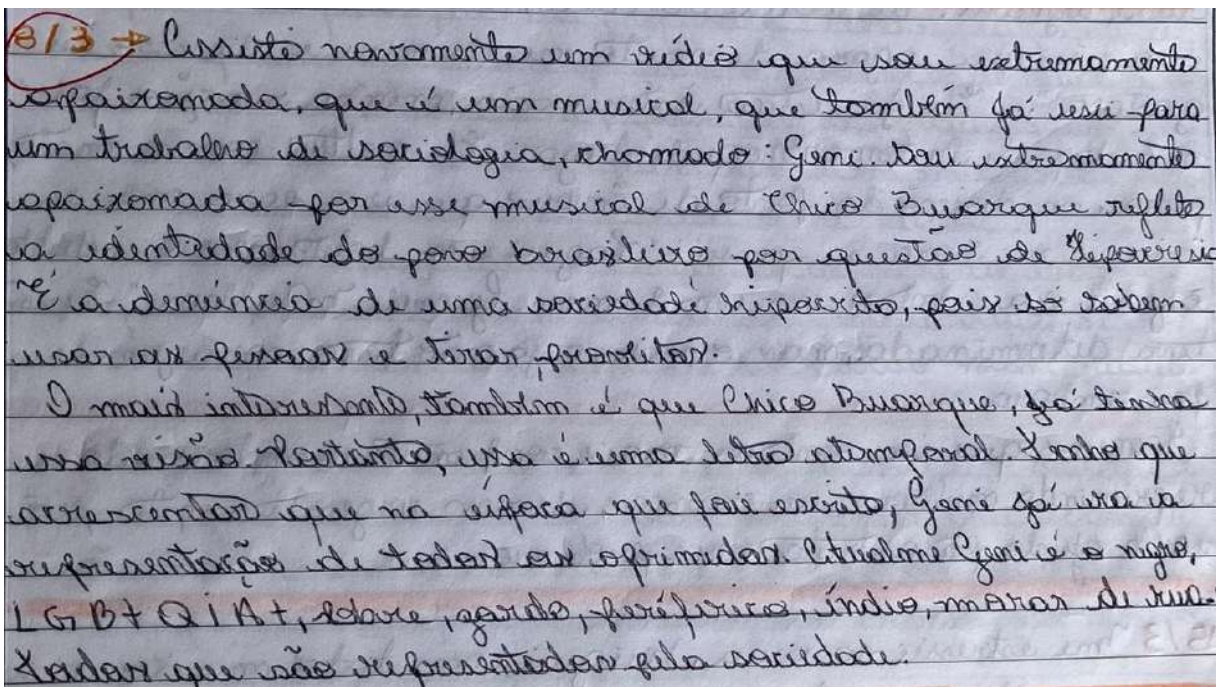 8/3 → Assisti novamente um vídeo que sou extremamente
apaixonada, que é um musical, que também já usei para
um trabalho de sociologia, chamado: Geni. Sou extremamente
apaixonada por esse musical de Chico Buarque reflete
a identidade do povo brasileiro por questão de hipocresia
"É a denúncia de uma sociedade hipocrita, pois só sabem
usar as pessoas e tirar proveitos.
O mais interessante, também é que Chico Buarque, já tinha
essa visão. Portanto, essa é uma letra atemporal. Tenho que
acrescentar que na época que foi escrito, Geni já era a
representação de todos os oprimidos. Atualme Geni é o negro,
LGBT+QIA+, pobre, gordo, periférico, índio, moras de rua.
Todos que são representados pela sociedade.